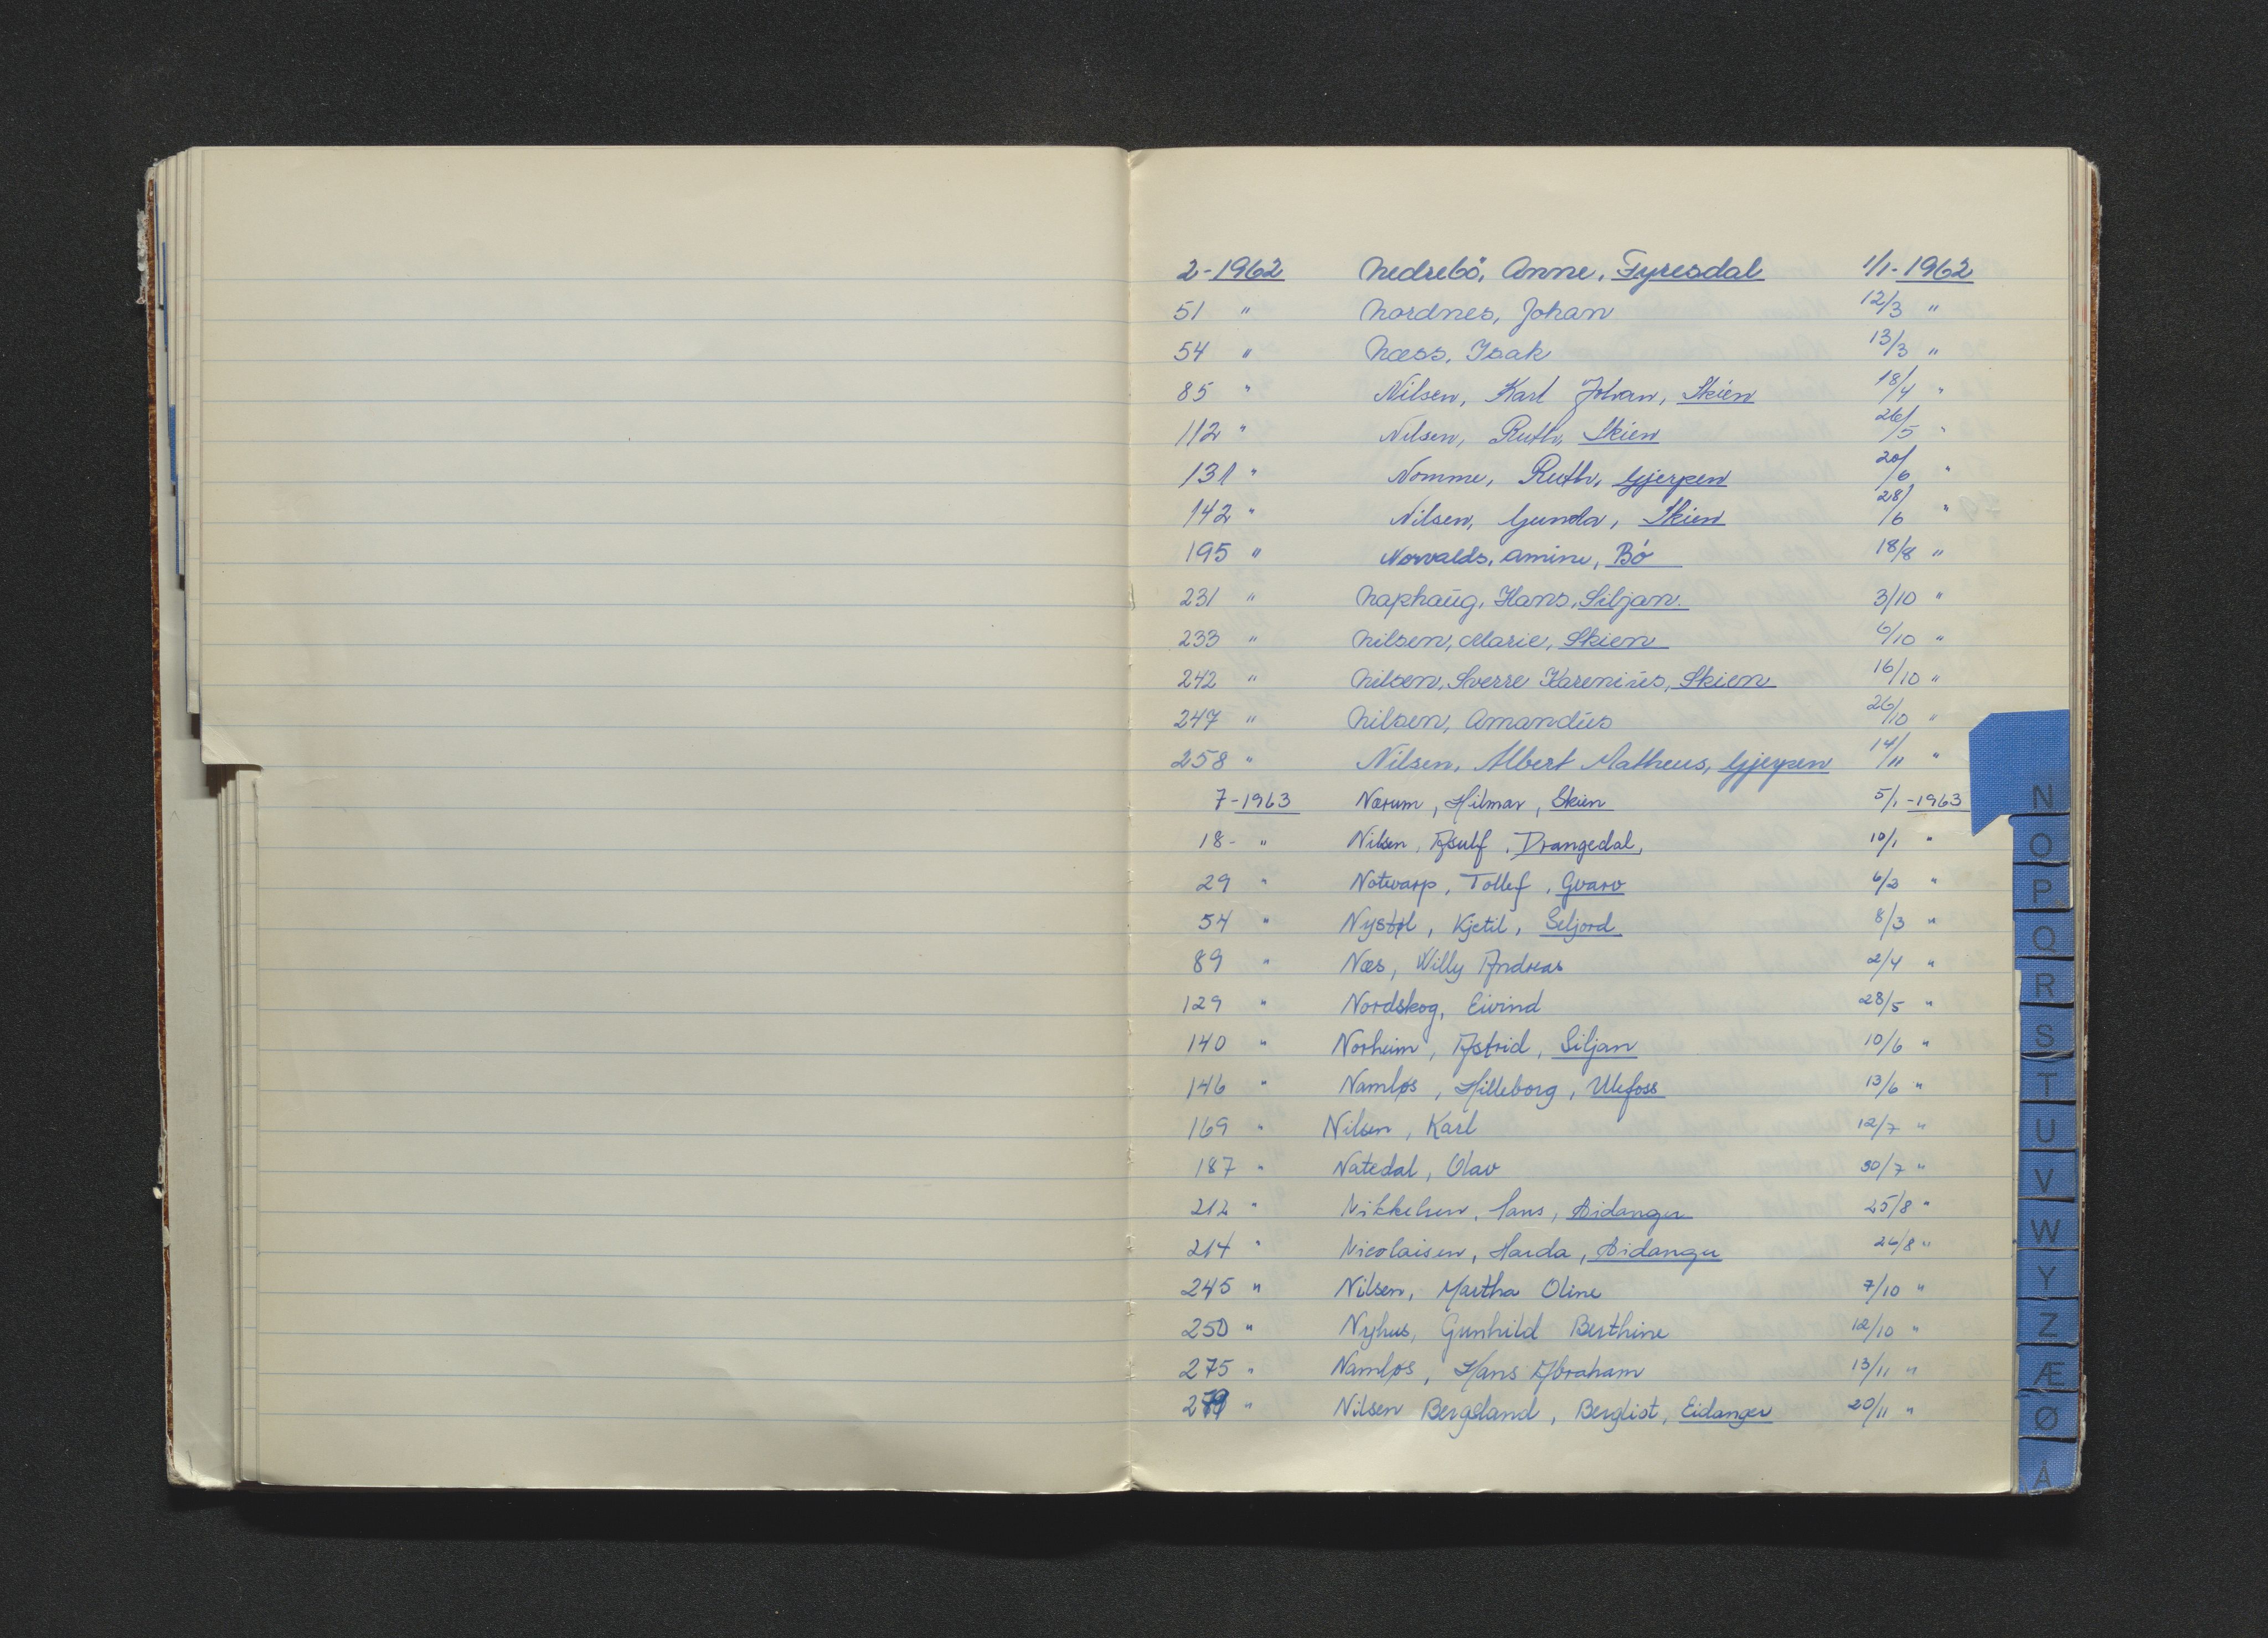 2-1962 Nedrebö, Anne, Fyresdal 1/1-1962
51 " Nordnes, Johan 12/3 "
54 " Næss, Isak 13/3 "
85 " Nilsen, Karl Johan, Skien 18/4 "
112 " Nilsen, Ruth, Skien 26/5 "
131 " Nomme, Ruth, Gjerpen 20/6 "
142 " Nilsen, Gunda, Skien 28/6 "
195 " Norvalds, Amine, Bó 18/8 "
231 " Naphaug, Hans, Siljan. 3/10 "
233 " Nilsen, Marie, Skien 6/10 "
242 " Nilsen, Sverre Karenius, Skien 16/10 "
247 " Nilsen, Amandus 26/10 "
258 " Nilsen, Albert Matheus, Gjerpen 14/11 "
7-1963 Nærum, Hilmar, Skien 5/1-1963
18- " Nilsen, Asulf, Drangedal, 10/1 "
29 " Notevarp, Tollef, Gvarv 6/2 "
54 " Nystøl, Kjetil, Seljord 8/3 "
89 " Næs, Willy Andreas 2/4 "
129 " Nordskog, Eivind 28/5 "
140 " Norheim, Astrid, Siljan 10/6 "
146 " Namløs, Hilleborg, Ulefoss 13/6 "
169 " Nilsen, Karl 12/7 "
187 " Natedal, Olav 30/7 "
212 " Nikkelsen, Hans, Eidanger 25/8 "
214 " Nicolaisen, Harda, Eidanger 26/8 "
245 " Nilsen, Martha Oline 7/10 "
250 " Nyhus, Gunhild Berthine 12/10 "
275 " Namløs, Hans Abraham 13/11 "
279 " Nilsen Bergsland, Bergliot, Eidanger 20/11 "
N
O
P
Q
R
S
T
U
V
W
Y
Z
Æ
Ø
Å